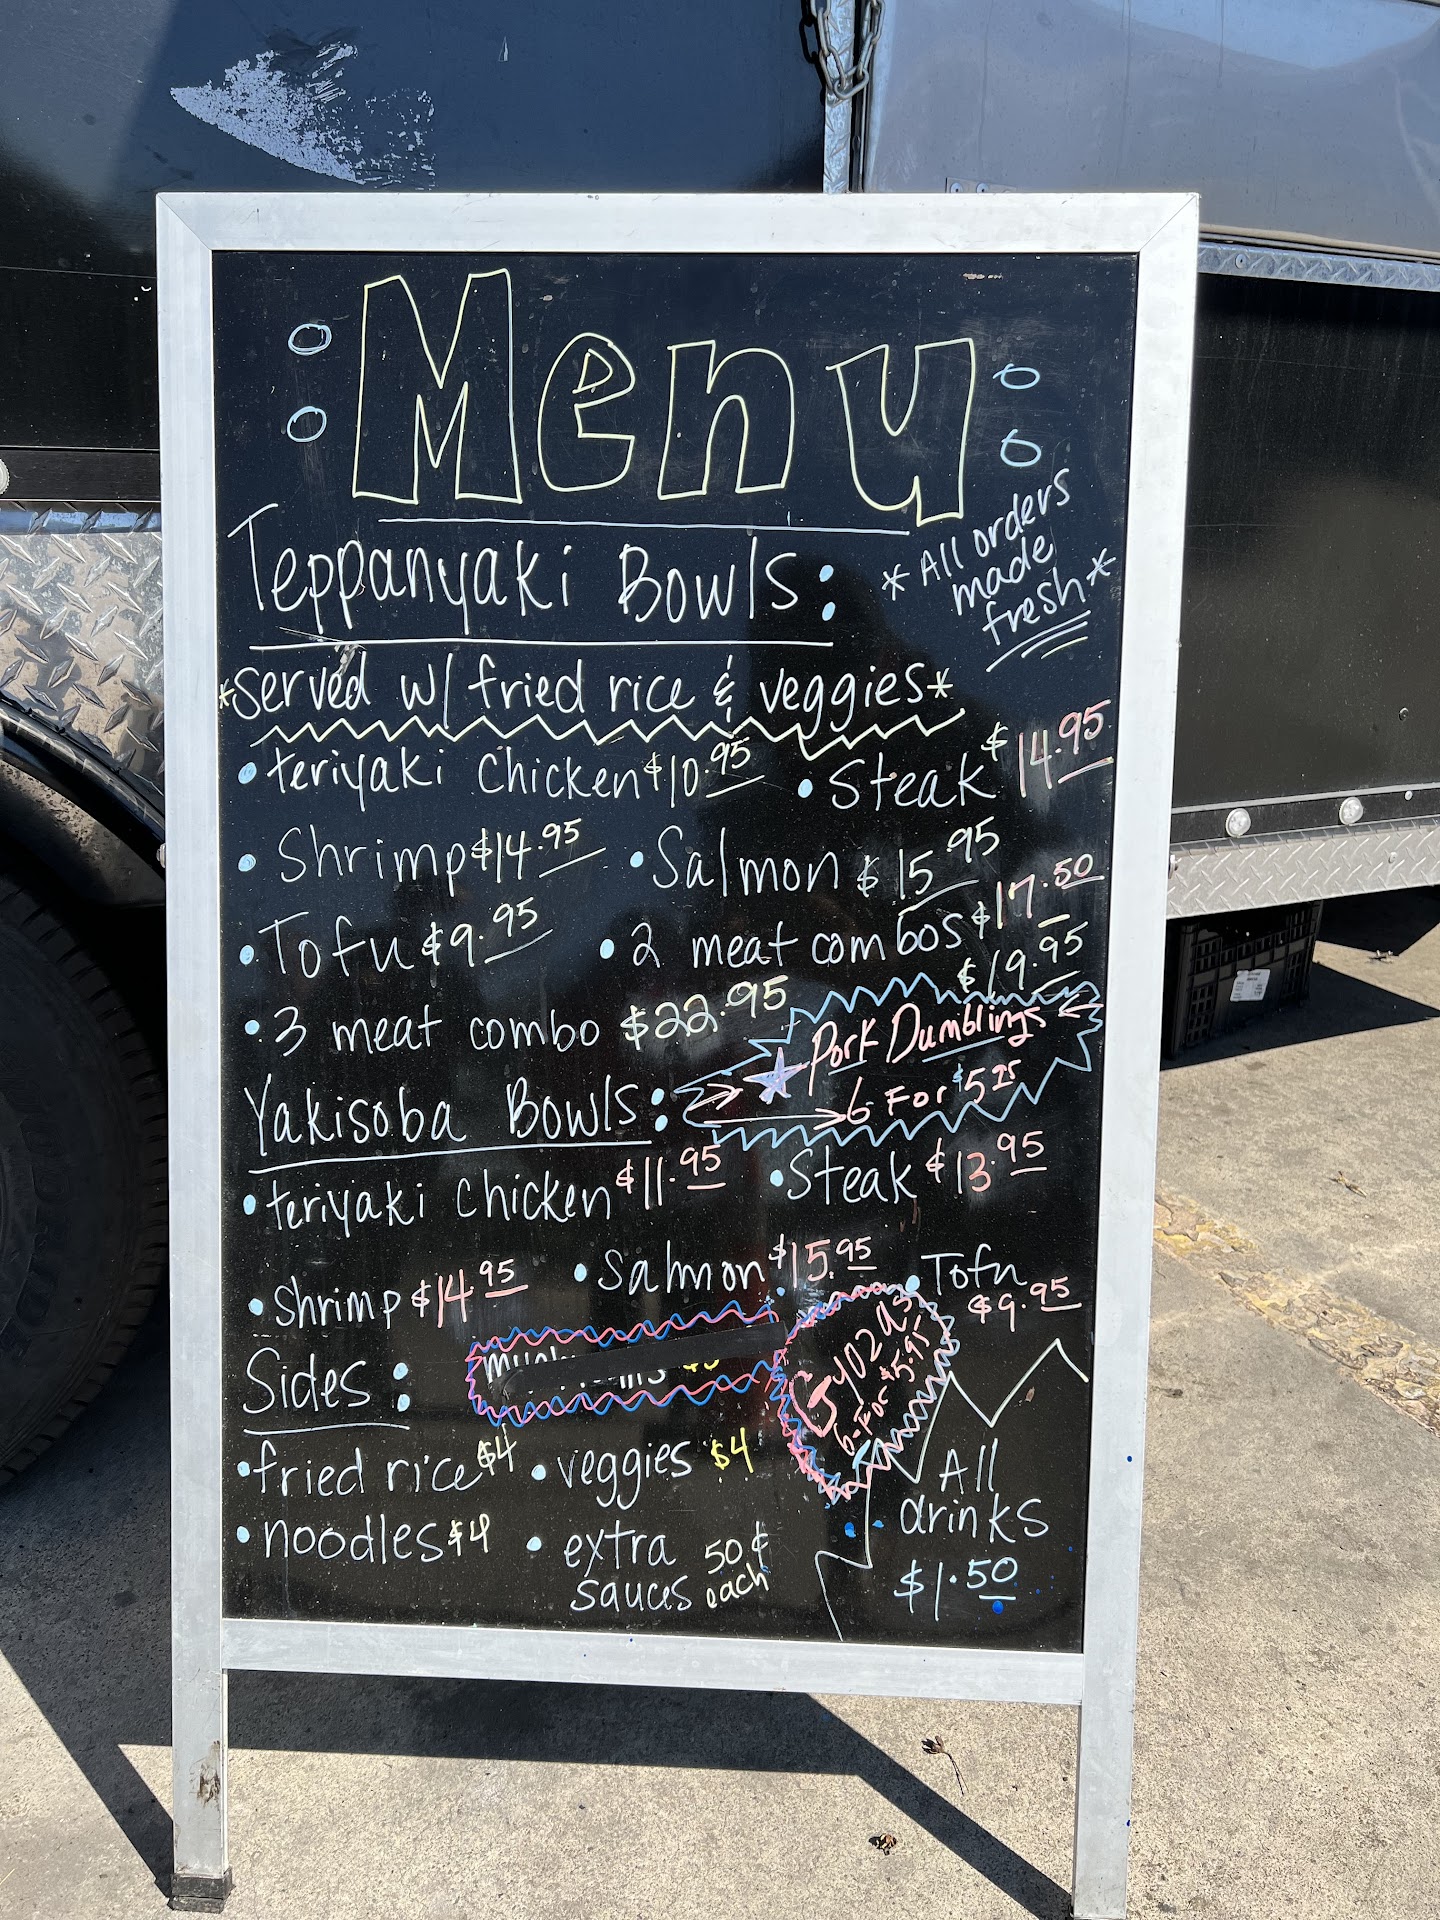 Menu
Teppanyaki Bowls:
* All orders
made
fresh *
*served w/ fried rice & veggies*
• teriyaki chicken $10.95
• Steak $14.95
• Shrimp $14.95
• Salmon $15.95
• Tofu $9.95
• 2 meat combos $17.50
$19.95
• 3 meat combo $22.95
Pork Dumblings
6 For $5.25
Yakisoba Bowls:
• teriyaki chicken $11.95
• Steak $13.95
• Shrimp $14.95
• Salmon $15.95
• Tofu
$9.95
Sides:
Gyoza's
6-For $5.95
• fried rice $4
• veggies $4
• noodles $4
• extra
sauces
50¢
each
All
drinks
$1.50